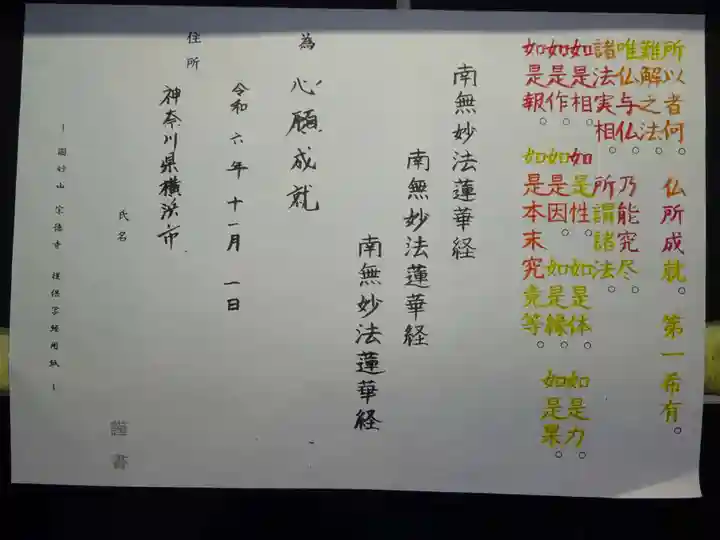 所以者何。仏所成就。第一希有。
難解之法。
唯仏与仏。乃能究尽。
諸法実相。所謂諸法。
如是相。如是性。如是体。如是力。
如是作。如是因。如是縁。如是果。
如是報。如是本末究竟等。
南無妙法蓮華経
南無妙法蓮華経
南無妙法蓮華経
為 心願成就
令和六年十一月一日
住所 神奈川県横浜市
氏名
謹書